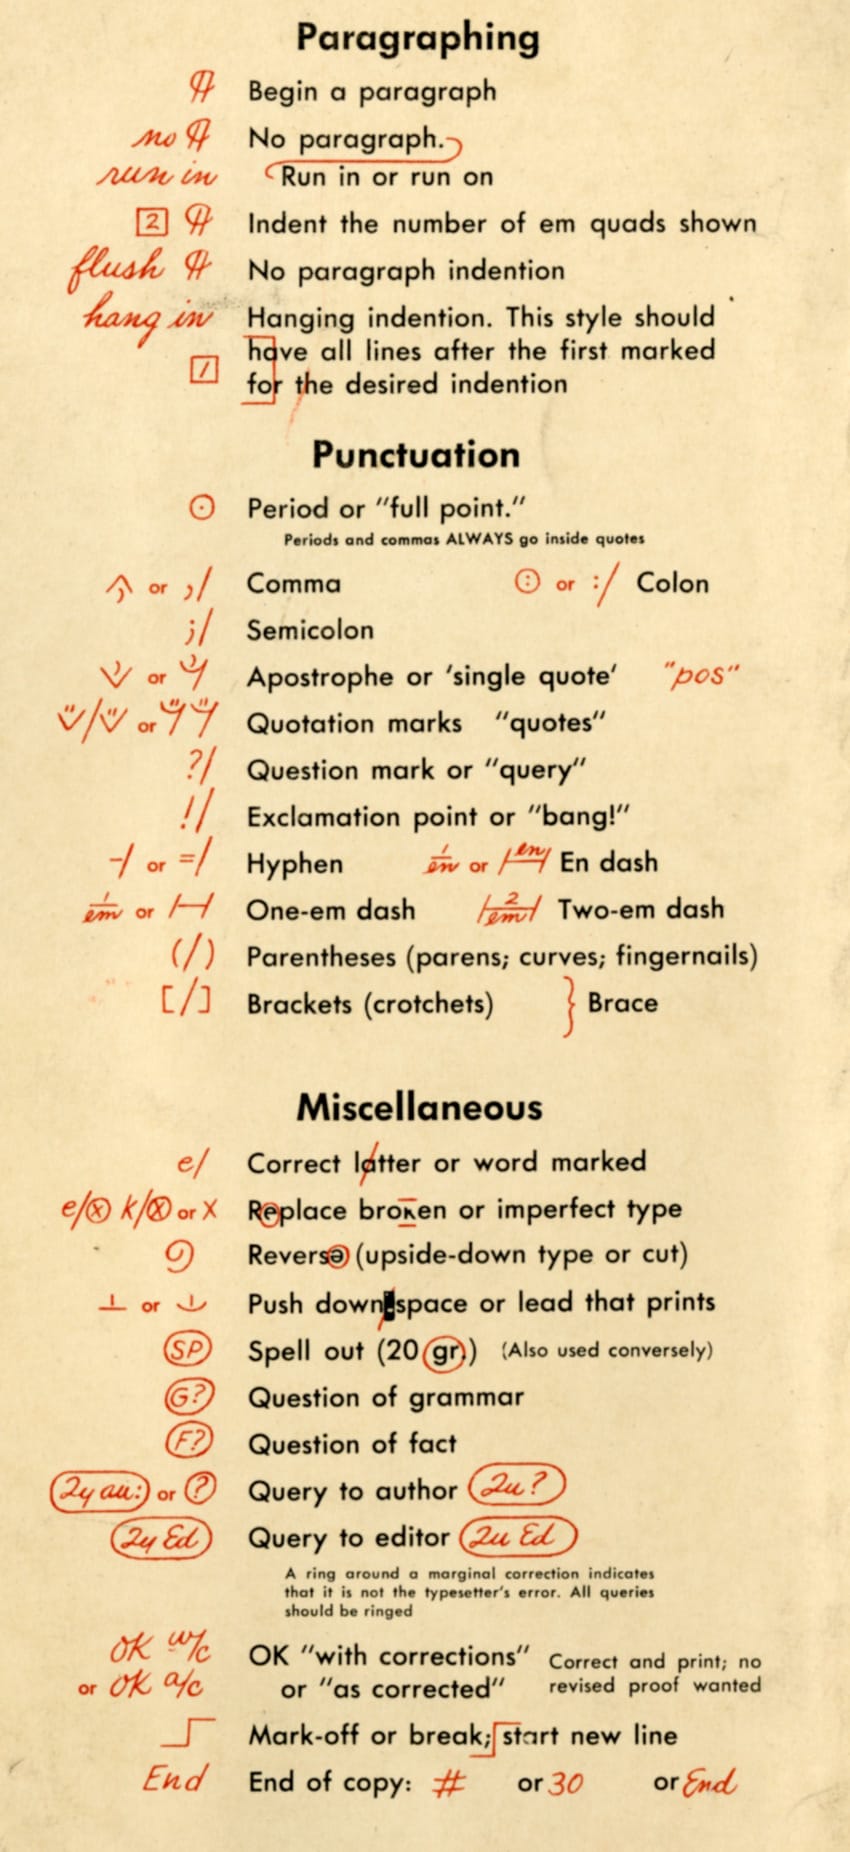 Paragraphing
¶ Begin a paragraph
no ¶ No paragraph.
run in Run in or run on
2 ¶ Indent the number of em quads shown
flush ¶ No paragraph indention
hang in Hanging indention. This style should
have all lines after the first marked
1 for the desired indention
Punctuation
⊙ Period or "full point."
Periods and commas ALWAYS go inside quotes
, or ,/ Comma : or :/ Colon
;/ Semicolon
' or ' Apostrophe or 'single quote' "pos"
"/" or " " Quotation marks "quotes"
?/ Question mark or "query"
!/ Exclamation point or "bang!"
-/ or =/ Hyphen 1/en or en En dash
1/em or |-| One-em dash 2/em Two-em dash
(/) Parentheses (parens; curves; fingernails)
[/] Brackets (crotchets) } Brace
Miscellaneous
e/ Correct latter or word marked
e/ⓧ k/ⓧ or X Replace broken or imperfect type
9 Reverse (upside-down type or cut)
⊥ or ⊥ Push down space or lead that prints
SP Spell out (20 gr.) (Also used conversely)
G? Question of grammar
F? Question of fact
Qy au: or ? Query to author Qu?
Qy Ed Query to editor Qu Ed
A ring around a marginal correction indicates
that it is not the typesetter's error. All queries
should be ringed
OK w/c OK "with corrections" Correct and print; no
or OK a/c or "as corrected" revised proof wanted
Mark-off or break; start new line
End End of copy: # or 30 or End